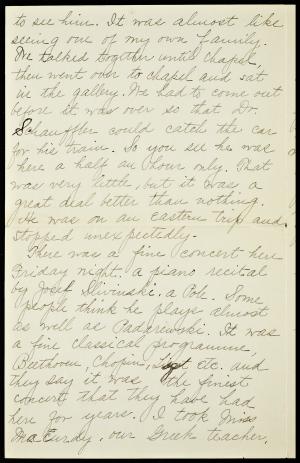 to see him. It was almost like
seeing one of my own family.
We talked together until chapel,
then went over to chapel and sat
in the gallery. We had to come out
before it was over so that Dr.
Schauffler could catch the car
for his train. So you see he was
here a half an hour only. That
was very little, but it was a
great deal better than nothing.
He was on an Eastern trip and
stopped unexpectedly.
There was a fine concert here
Friday night, a piano recital
by Josef Slivinski, a Pole. Some
people think he plays almost
as well as Paderewski. It was
a fine classical programme,
Beethoven, Chopin, Liszt etc. and
they say it was the finest
concert that they have had
here for years. I took Miss
MacCurdy, our Greek teacher,